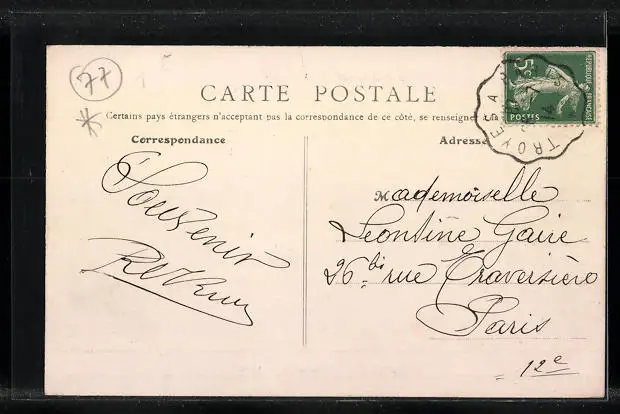 77
*
CARTE POSTALE
Certains pays étrangers n'acceptant pas la correspondance de ce côté, se renseigner
Correspondance
Adresse
Souvenir
5c
POSTES
REPUBLIQUE FRANÇAISE
TROYES A
Mademoiselle
Leontine Gaire
26 bis rue Traversière
Paris
12e